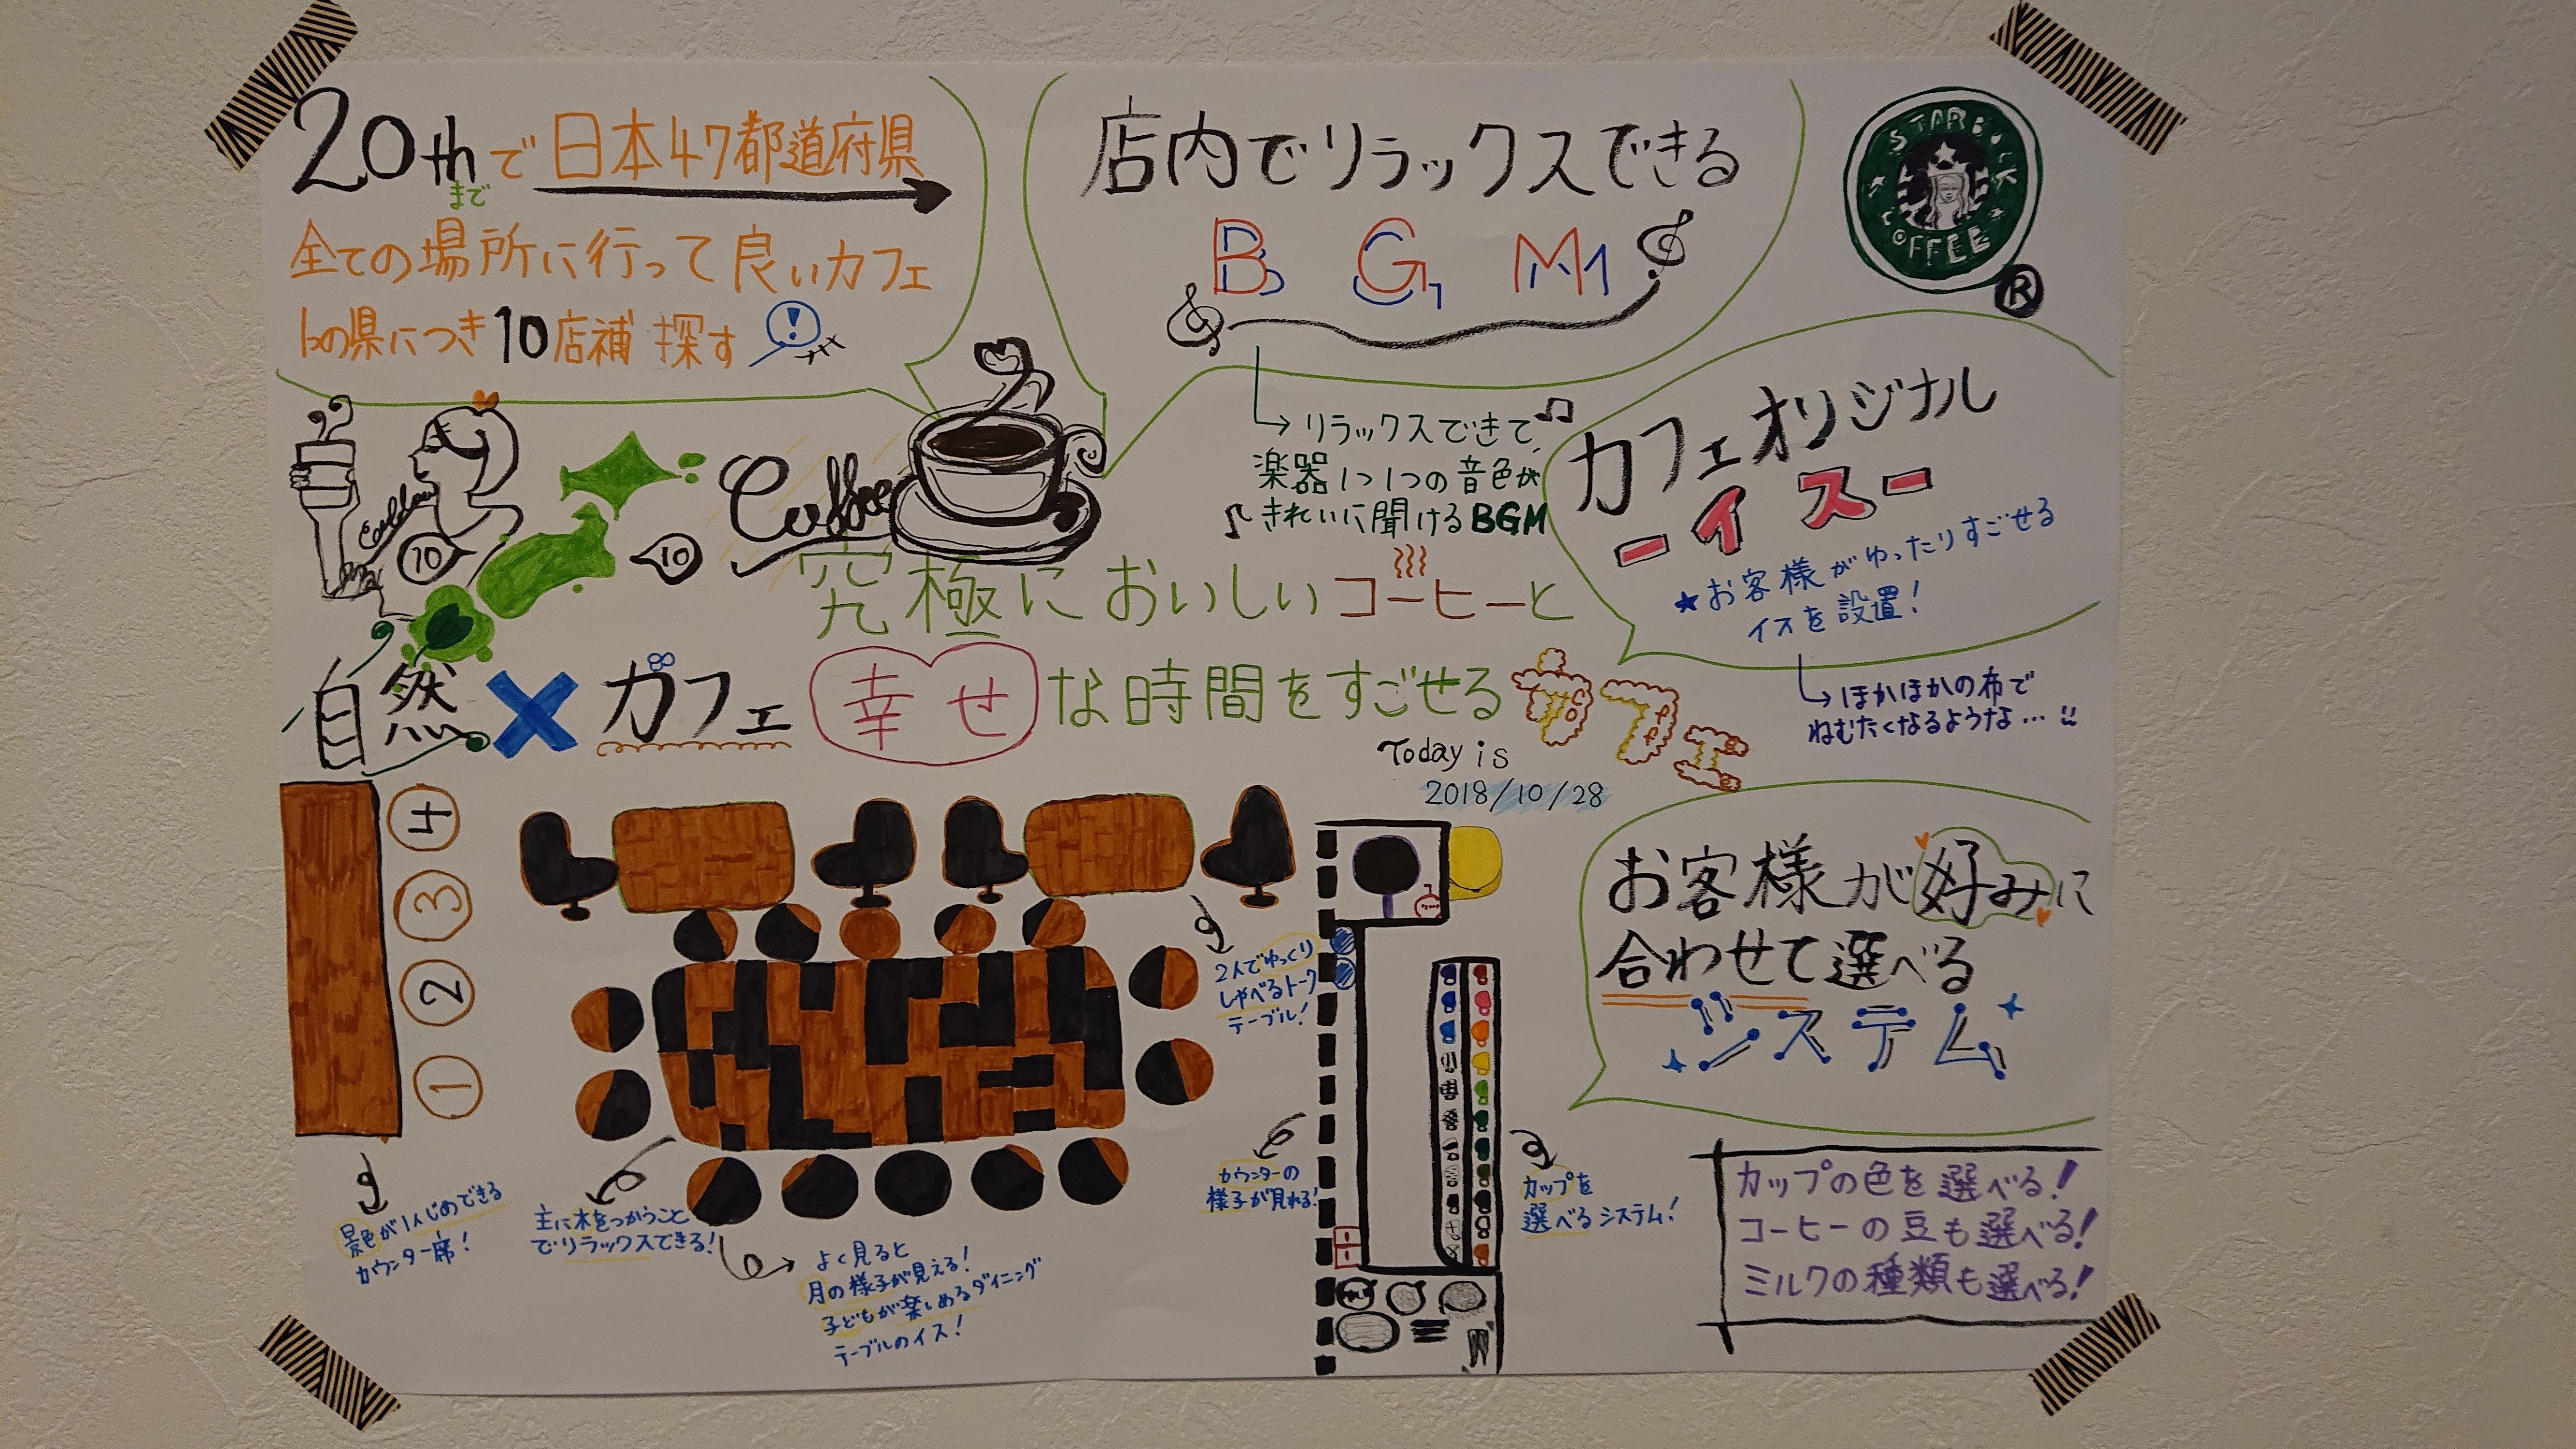 20thで日本47都道府県
まで
全ての場所に行って良いカフェ
1つの県につき10店補 探す
!
店内でリラックスできる
BGM
STARBUCK
COFFEE
R
→リラックスできて、
楽器1つ1つの音色が
きれいに聞けるBGM
カフェオリジナル
ーイスー
★お客様がゆったりすごせる
イスを設置!
→ほかほかの布で
ねむたくなるような…
10
10
Coffee
究極においしいコーヒーと
自然×カフェ
幸せな時間をすごせるカフェ
Today is
2018/10/28
4
3
2
1
景色が1人じめできる
カウンター席!
主に木をつかうこと
でリラックスできる!
よく見ると
月の様子が見える!
子どもが楽しめるダイニング
テーブルのイス!
2人でゆっくり
しゃべるトーク
テーブル!
カウンターの
様子が見れる!
カップを
選べるシステム!
お客様が好みに
合わせて選べる
システム
カップの色を選べる!
コーヒーの豆も選べる!
ミルクの種類も選べる!